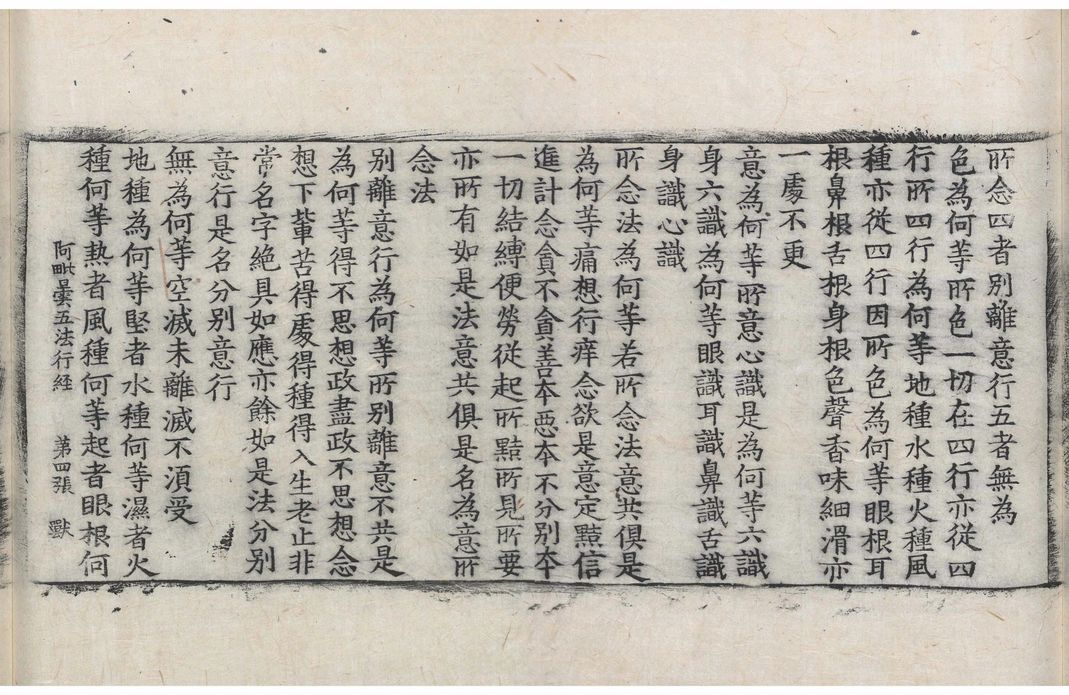 所念四者別離意行五者無為
色為何等所色一切在四行亦從四
行所四行為何等地種水種火種風
種亦從四行因所色為何等眼根耳
根鼻根舌根身根色聲香味細滑亦
一處不更
意為何等所意心識是為何等六識
身六識為何等眼識耳識鼻識舌識
身識心識
所念法為何等若所念法意共俱是
為何等痛想行痒念欲是意定黠信
進計念貪不貪善本惡本不分別本
一切結縛便勞從起所黠所見所要
亦所有如是法意共俱是名為意所
念法
別離意行為何等所別離意不共是
為何等得不思想政盡政不思想念
想下輩苦得處得種得入生老止非
常名字絶具如應亦餘如是法分別
意行是名分別意行
無為何等空滅未離滅不湏受
地種為何等堅者水種何等濕者火
種何等熱者風種何等起者眼根何
阿毗曇五法行経 第四張 獸